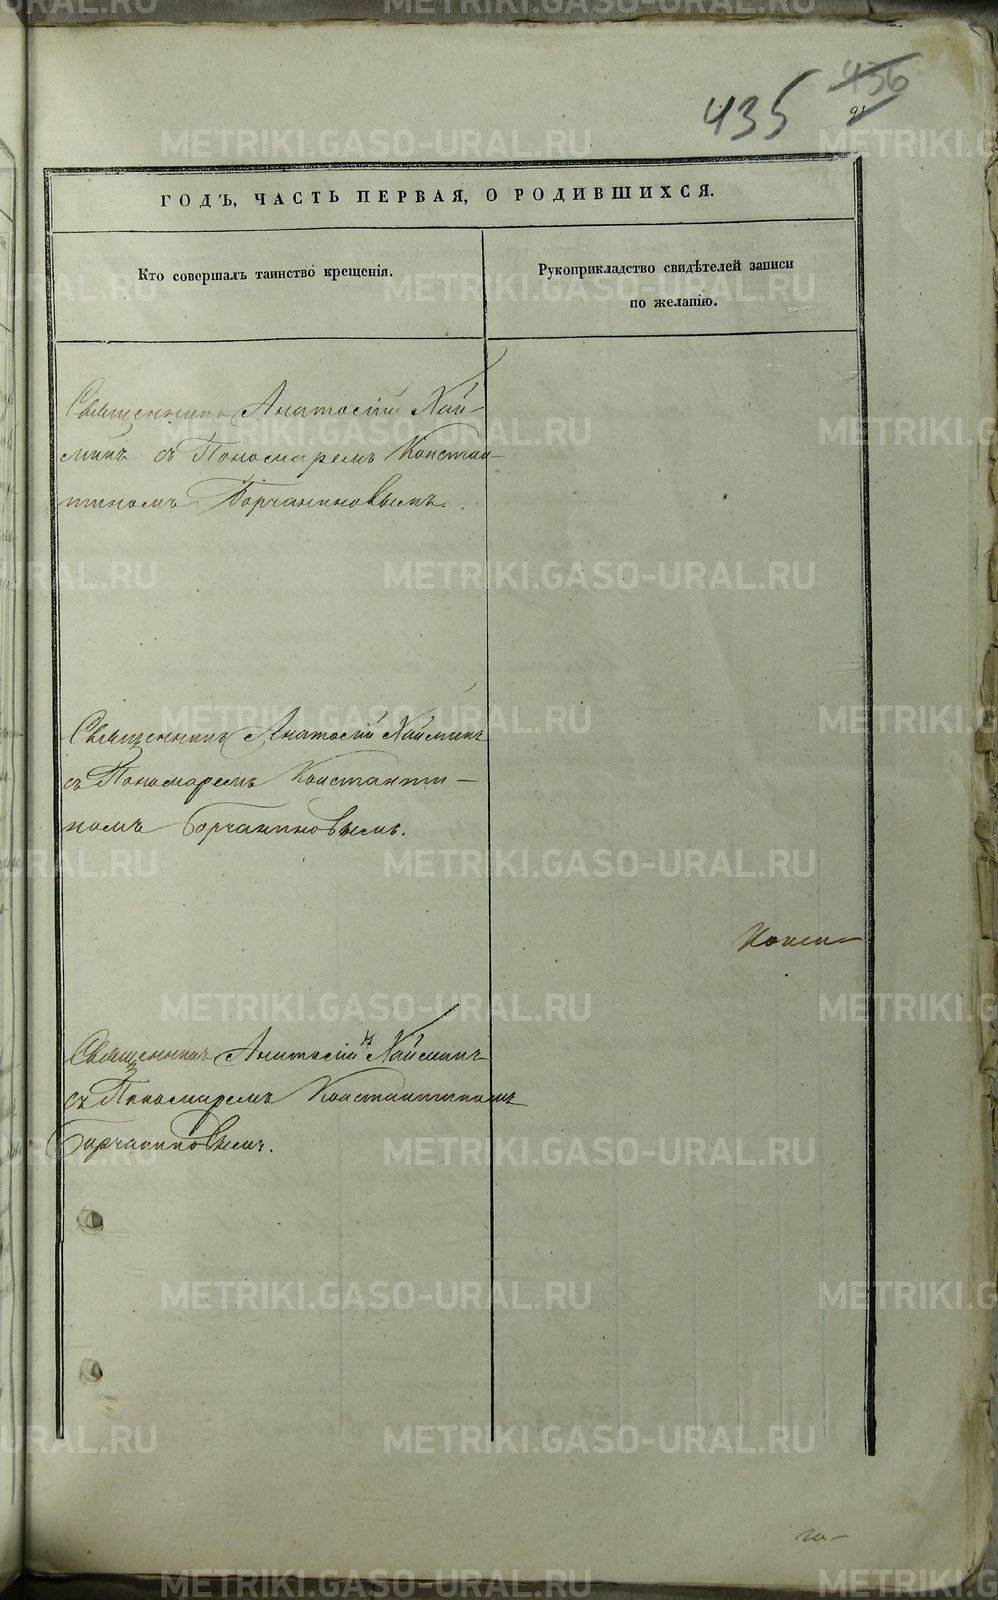 435 436
91
ГОДЪ, ЧАСТЬ ПЕРВАЯ, О РОДИВШИХСЯ.
Кто совершалъ таинство крещенія.
Рукоприкладство свидѣтелей записи
по желанію.
Священникъ Анатолій Хай-
минъ съ Пономаремъ Констан-
тиномъ Борчаниновымъ.
Священникъ Анатолій Хайминъ
съ Пономаремъ Константи-
номъ Борчаниновымъ.
Священникъ Анатолій Хайминъ
съ Пономаремъ Константиномъ
Борчаниновымъ.
METRIKI.GASO-URAL.RU